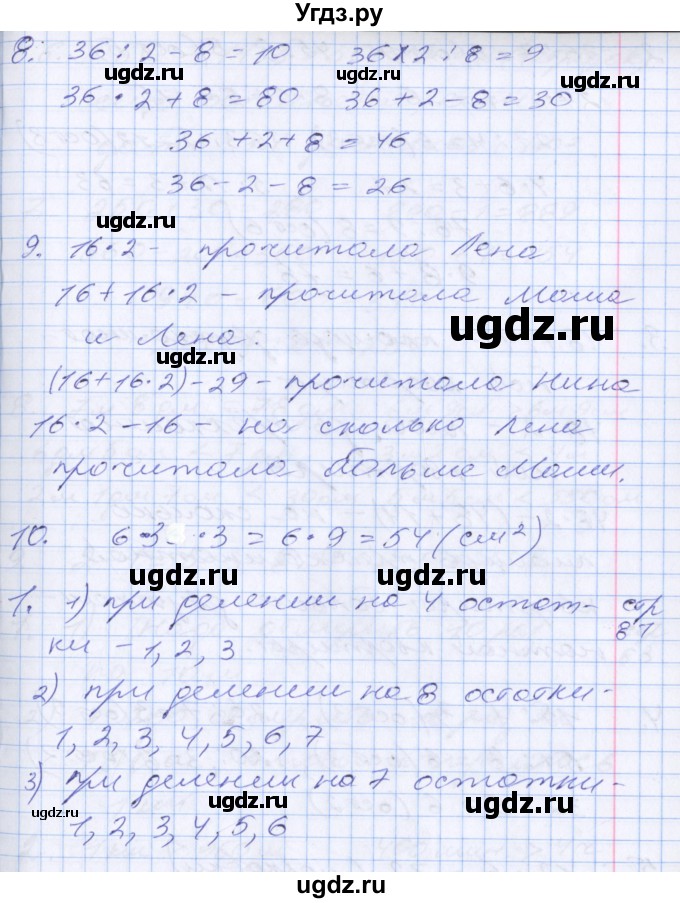 Угдз.ру
8. 36 : 2 - 8 = 10 36 · 2 : 8 = 9
ugdz.ru ugdz.ru
36 · 2 + 8 = 80 36 + 2 - 8 = 30
36 + 2 + 8 = 46
36 - 2 - 8 = 26
ugdz.ru
9. 16 · 2 - прочитала Лена
16 + 16 · 2 - прочитала Маша
ugdz.ru
и Лена.
ugdz.ru
(16 + 16 · 2) - 29 - прочитала Нина
16 · 2 - 16 - на сколько Лена
прочитала больше Маши.
10. 6 · 3 · 3 = 6 · 9 = 54 (см²)
ugdz.ru ugdz.ru
1. 1) при делении на 4 остат- стр
ки - 1, 2, 3 87
2) при делении на 8 остатки -
1, 2, 3, 4, 5, 6, 7
3) при делении на 7 остатки -
ugdz.ru ugdz.ru
1, 2, 3, 4, 5, 6
ugdz.ru